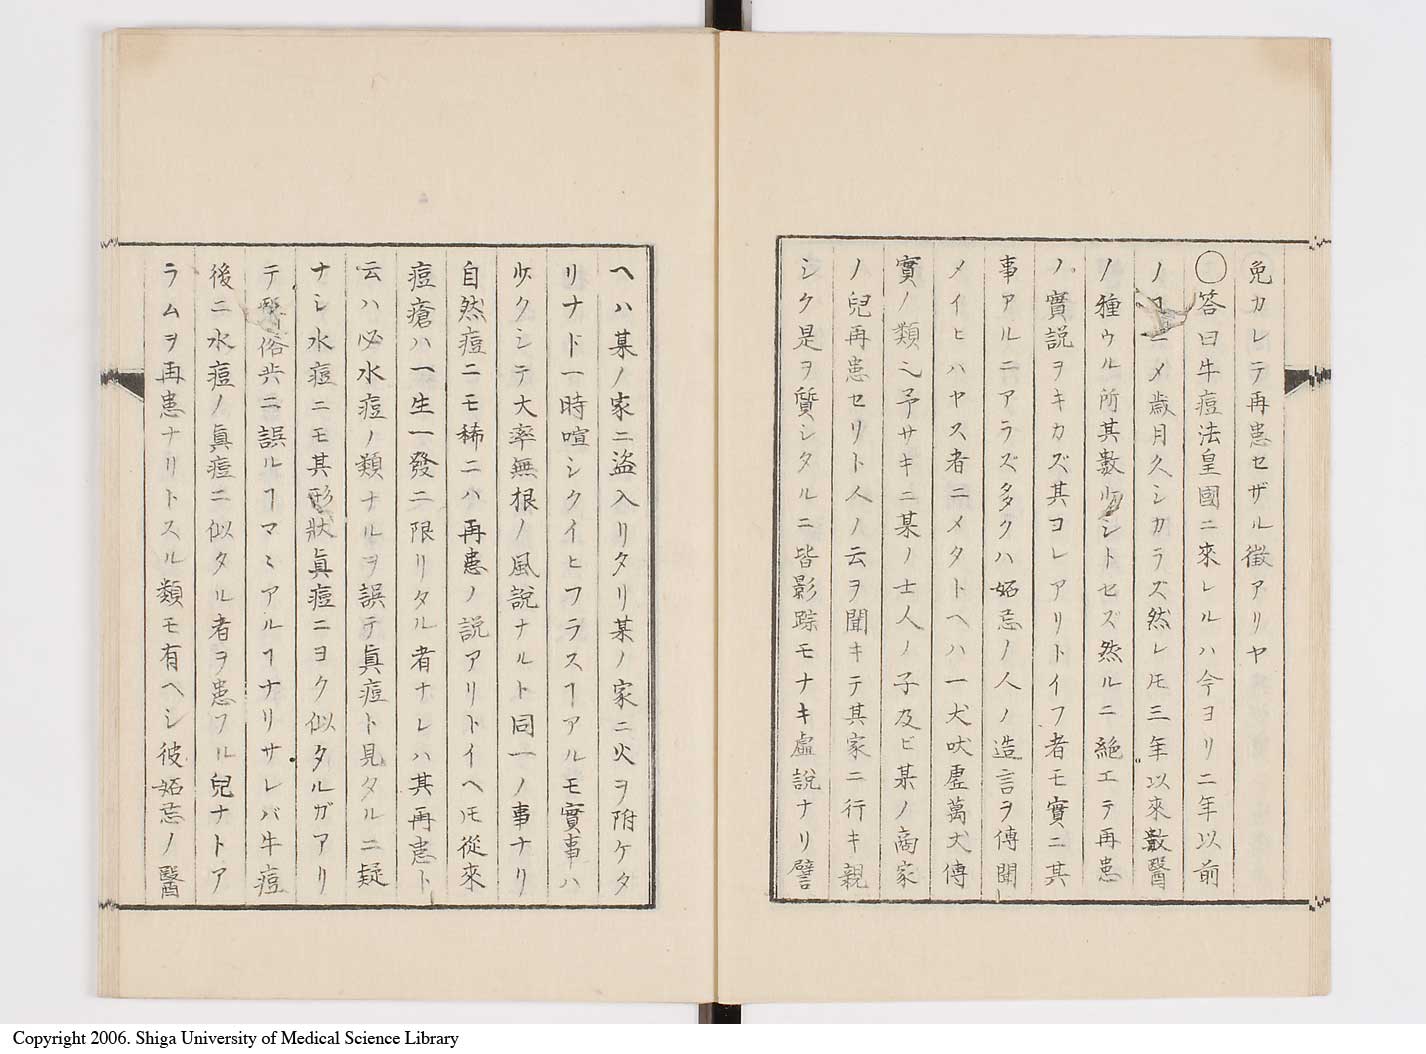 免カレテ再患セザル徴アリヤ
〇答曰牛痘法皇國ニ來レルハ今ヨリ二年以前
ノヿニメ歳月久シカラズ然レ𪜈三年以來數醫
ノ種ウル所其數少シトセズ然ルニ絶エテ再患
ノ實説ヲキカズ其コレアリトイフ者モ實ニ其
事アルニアラズ多クハ妬忌ノ人ノ造言ヲ傳聞
メイヒハヤス者ニメタトヘハ一犬吠虚萬犬傳
實ノ類也予サキニ某ノ士人ノ子及ビ某ノ商家
ノ兒再患セリト人ノ云ヲ聞キテ其家ニ行キ親
シク是ヲ質シタルニ皆影踪モナキ虚説ナリ譬
ヘハ某ノ家ニ盗入リタリ某ノ家ニ火ヲ附ケタ
リナド一時喧シクイヒフラスヿアルモ實事ハ
少クシテ大率無根ノ風説ナルト同一ノ事ナリ
自然痘ニモ稀ニハ再患ノ説アリトイヘ𪜈從來
痘瘡ハ一生一發ニ限リタル者ナレハ其再患ト
云ハ必水痘ノ類ナルヲ誤テ眞痘ト見タルニ疑
ナシ水痘ニモ其形狀眞痘ニヨク似タルガアリ
テ醫俗共ニ誤ルヿマミアルヿナリサレバ牛痘
後ニ水痘ノ眞痘ニ似タル者ヲ患フル兒ナトア
ラムヲ再患ナリトスル類モ有ヘシ彼妬忌ノ醫
Copyright 2006. Shiga University of Medical Science Library